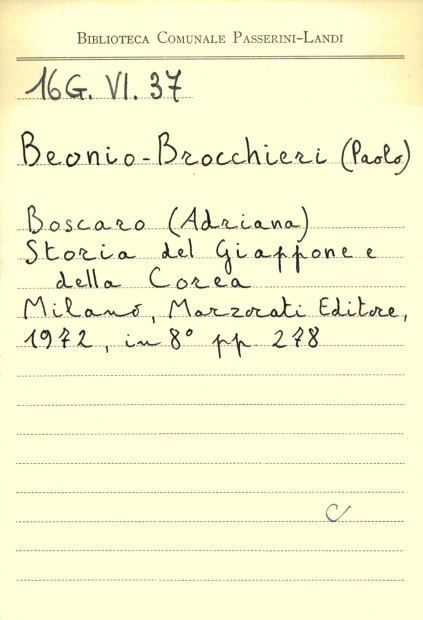 BIBLIOTECA COMUNALE PASSERINI-LANDI
16G. VI. 37
Beonio-Brocchieri (Paolo)
Boscaro (Adriana)
Storia del Giappone e
della Corea
Milano, Marzorati Editore,
1972, in 8° pp. 278
C